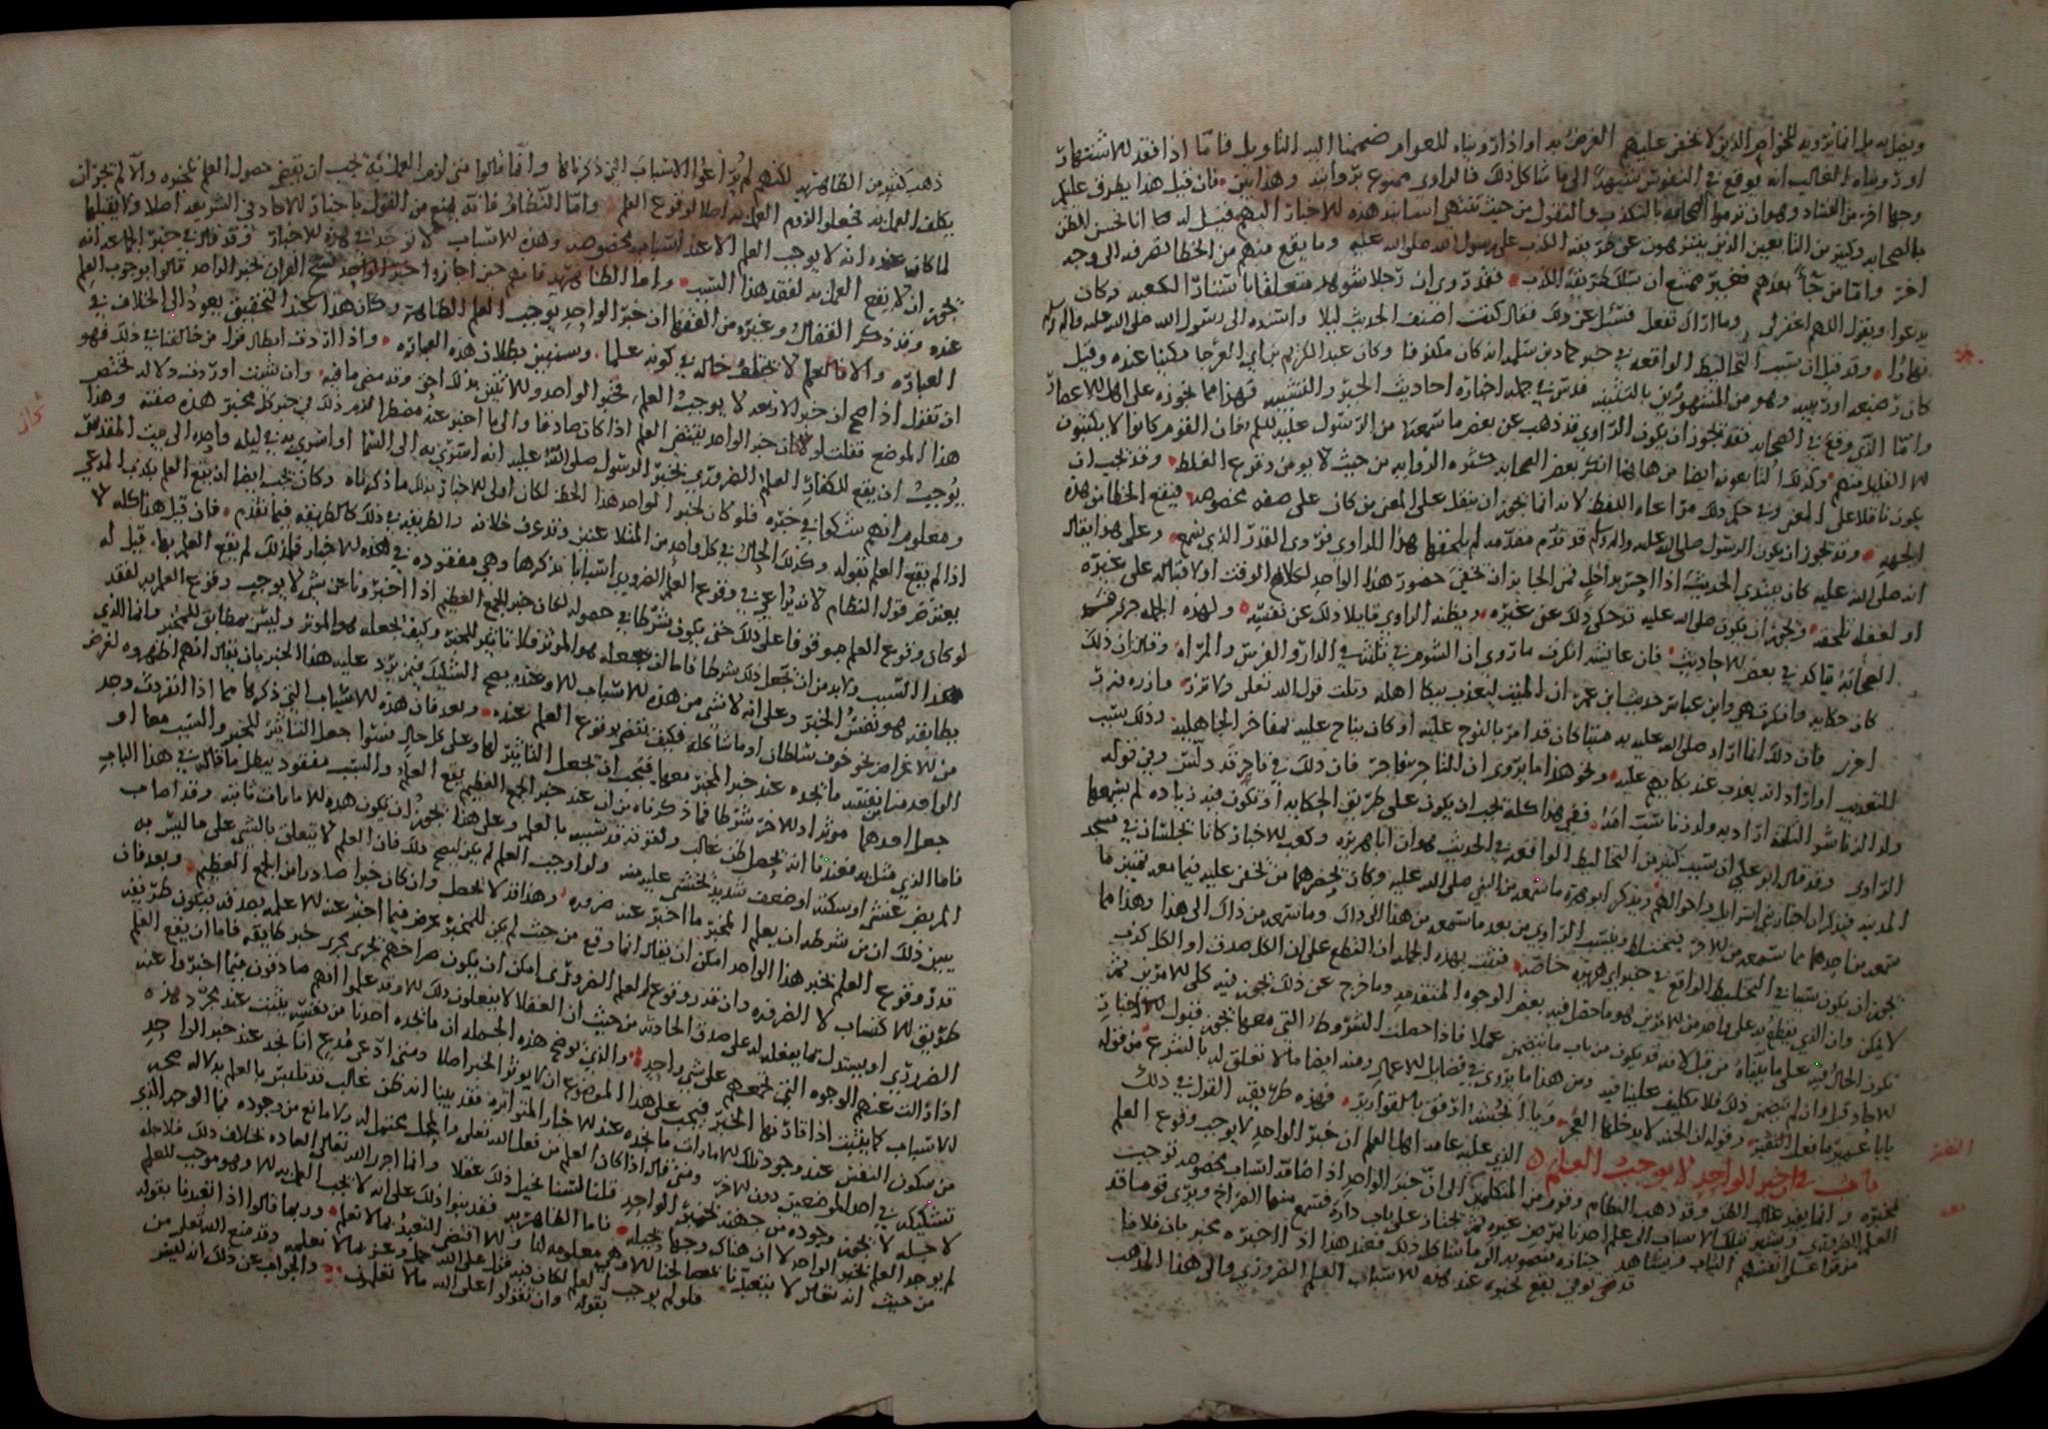 ويقل به بل انما يرويه للخواص الذين لا يخفى عليهم الغرض به او اذا رويناه للعوام ضممنا اليه التاويل فاما اذا فقد للاشتهار
اوردناه الغالب انه يوقع في النفوس شبهة الى ما شاكل ذلك فالراوي ممنوع من روايته وهذا بين فان قيل هذا يطرق عليكم
وجها اخر من الفساد وهو ان ترموا الصحابة بالكذب والتقول من حيث تنتهي اسانيد هذه الاخبار اليهم قيل له كما انا نحسن الظن
بالصحابة وكثير من التابعين الذين ينزهون عن طريقة الكذب على رسول الله صلى الله عليه وما يقع منهم من الخطا نصرفه الى وجه
اخر واما من جاء بعدهم فغير ممتنع ان يسلك طريقة الكذب فقد روي ان رجلا شوهد متعلقا باستار الكعبة وكان
يدعوا ويقول اللهم اغفر لي وما اراك تفعل فسئل عن ذلك فقال كنت اضنف الحديث ليلا واسنده الى رسول الله صلى الله عليه واله
نهارا وقد قيل ان سبب التخاليط الواقعة في خبر حماد بن سلمة انه كان مكفوفا وكان عبد الكريم بن ابي العوجا مكينا عنده وقيل
كان رضيعه او ربيبه وهو من المشهورين بالتثنية فدس في جملة اخباره احاديث الجبر والتشبيه فهذا مما نجوزه على اهل الاعصار
واما الذي وقع في الصحابة فقد نجوز ان يكون الراوي قد ذهب عن بعض ما سمعه من الرسول عليه السلم فان القوم كانوا لا يكتبون
الا القليل منهم وكذلك التابعون ايضا من هاهنا انكر بعض الصحابة كثرة الرواية من حيث لا يومن وقوع الغلط وقد نجب ان
يكون ناقلا على المعنى وفي حكم ذلك مراعاة اللفظ لانه انما نجوز ان ينقل على المعنى من كان على صفة مخصوصة فيقع الخطا من هذه
الجهة وقد نجوز ان يكون الرسول صلى الله عليه واله وسلم قد تقدم مقدمة لم يلحقها هذا الراوي فروى القدر الذي سمع وعلى هذا يقال
انه صلى الله عليه كان يبتدي الحديث اذا احس بداخل فمن الجايز ان نخفى حضور هذا الواحد لكلام الوقت او لاقباله على غيره
او لغفلة تلحقه ونجوز ان يكون صلى الله عليه قد حكى ذلك عن غيره ويظنه الراوي قايلا ذلك عن نفسه ولهذه الجملة
الصحابة قالت في بعض الاحاديث فان عايشة انكرت ما روي ان الشوم في ثلثة في الدار والفرس والمراة وقالت ان ذلك
كان حكاية وانكرت هي وابن عباس حديث ابن عمر ان الميت ليعذب ببكا اهله وتلت قول الله تعالى ولا تزر وازرة وزر
اخرى فان ذلك انما اراد صلى الله عليه به ميتا كان قد امر بالنوح عليه او كان يناح عليه بمفاخر الجاهلية وذلك بسبب
للتعذيب او اراد انه يعذب عند بكايهم عليه ونحو هذا ما يروى ان التاجر فاجر فان ذلك في فاجر قد دلس وفي قوله
ولد الزنا شر الثلثة اراد به ولد زنا سب امه ففي هذا كله نجب ان يكون على طريق الحكاية او تكون فيه زيادة لم يسمعها
الراوي وقد قال ابو علي ان سبب كثير من التخاليط الواقعة في الحديث هو ان ابا هريرة وكعب الاخبار كانا نجلسان في مسجد
المدينة فيذكر اخبار بني اسرايل واحوالهم ويذكر ابو هريرة ما سمعه من النبي صلى الله عليه وكان نحضرهما من نخفى عليه فيما بعد تمييز ما
سمعه من احدهما مما سمعه من الاخر فيختلط وينسب الراوي من بعد ما سمعه من هذا الى ذاك وما سمعه من ذاك الى هذا وهذا مما
نجوز ان يكون سببا في التخليط الواقع في خبر ابي هريرة خاصة فثبت بهذه الجملة ان القطع على ان الكل صدق او الكل كذب
لا يمكن وان الذي يقطع به على واحد من الامرين هو ما حصل فيه بعض الوجوه المتقدمة وما خرج عن ذلك نجوز فيه كلى الامرين ثم
تكون الحال فيه على ما بيناه من قبل لانه قد يكون من باب ما يتضمن عملا فاذا حصلت الشروط التي معها نجوز قبول الاخبار
الاحاد قبل وان لم يتضمن ذلك فلا تكليف علينا فيه ومن هذا ما يروى في فضايل الاعمال ومنه ايضا ما لا تعلق له بالشرع من قوله
يابا عمير ما فعل النغير وقوله ان الجنة لا يدخلها العجز ويا انجشة ارفق بالقوارير فهذه طريقة القول في ذلك
باب في ان خبر الواحد لا يوجب العلم الذي عليه عامة اهل العلم ان خبر الواحد لا يوجب وقوع العلم
بمخبره وانما يفيد غالب الظن وقد ذهب النظام وقوم من المتكلمين الى ان خبر الواحد اذا ضامه اسباب مخصوصة توجب
العلم الضروري ويشير بتلك الاسباب الى علم احدنا بمرض غيره ثم نجتاز على باب داره فتسمع منها الصراخ ويرى قوما قد
مزقوا على انفسهم الثياب ويشاهد جنازة منصوبة الى ما شاكل ذلك فعند هذا اذا اخبره مخبر بان فلانا
قد مضى توفي يقع نخبره عند هذه الاسباب العلم الضروري والى هذا المذهب
ذهب كثير من الظاهرية لكنهم لم يراعوا الاسباب التي ذكرناها وانما قالوا متى لزم العمل به نجب ان يقتضي حصول العلم بمخبره والا لم نجز ان
يكلف العمل به فجعلوا لزوم العمل به اصلا لوقوع العلم واما النظام فانه يمنع من القول باخبار الاحاد في الشريعة اصلا ولا يقبلها
لما كان عنده انه لا يوجب العلم الا عند اسباب مخصوصة وهذه الاسباب لا توجد في هذه الاخبار وقد قال في خبر الجماعة انه
نجوز ان لا يقع العلم به لفقد هذا السبب واما الظاهرية فانهم حين اجازوا نسخ القران نخبر الواحد قالوا بوجوب العلم
عنده وقد ذكر القفال وغيره من الفقها ان خبر الواحد يوجب العلم الظاهر وكان هذا عند التحقيق يعود الى الخلاف في
العبارة والا فالعلم لا نختلف حاله في كونه علما وسنبين بطلان هذه العبارة واذا اردت ابطال قول من خالفنا في ذلك فهو
ان تقول اذا صح ان خبر الاربعة لا يوجب العلم فخبر الواحد والاثنين بذلك احق وقد مضى ما فيه وان شئت اوردت دلالة تختص
هذا الموضع فقلت لو كان خبر الواحد يقتضي العلم اذا كان صادقا والى ما اخبر عنه مضطرا للزم ذلك في خبر كل مخبر هذه صفته وهذا
يوجب ان يقع للكفار العلم الضروري نخبر الرسول صلى الله عليه انه اسرى به الى السما او اسري به في ليلة واحدة الى بيت المقدس
ومعلوم انهم شكوا في خبره فلو كان لخبر الواحد هذا الحظ لكان اولى الاخبار بذلك ما ذكرناه وكان نجب ايضا ان يقع العلم بكذب المدعي
اذا لم يقع العلم بقوله وكذلك الحال في كل واحد من المتلاعنين وقد عرف خلافه والطريقة في ذلك كالطريقة فيما تقدم فان قيل هذا كله لا
يعترض قول النظام لانه يراعي في وقوع العلم الضروري اسبابا نذكرها وهي مفقودة في هذه الاخبار فلذلك لم يقع العلم بها قيل له
لو كان وقوع العلم موقوفا على ذلك حتى يكون شرطا في حصوله لكان خبر الجمع العظيم اذا اخبروا عن شي لا يوجب وقوع العلم به لفقد
هذا السبب ولا بد من ان تجعل ذلك شرطا فاما ان تجعله هو الموثر فلا تاثير للخبر وكيف نجعله هو الموثر وليس بمطابق للمخبر وانما الذي
يطابقه هو نفس الخبر وعلى انه لا شي من هذه الاسباب الا وعنده يصح التشكيك فيما يرد عليه هذا الخبر بان يقال انهم اظهروه لغرض
من الاغراض نحو خوف سلطان او ما شاكله فكيف يقتضي وقوع العلم عنده وبعد فان هذه الاسباب التي ذكرها مما اذا انفردت وجد
الواحد منا من نفسه ما نجده عند خبر المخبر معها فيجب ان نجعل التاثير لها وعلى كل حال سوا جعل التاثير للخبر والسبب معا او
جعل احدهما موثرا والاخر شرطا فما ذكرناه من ان عند خبر الجمع العظيم يقع العلم والسبب مفقود يبطل ما قاله في هذا الباب
فاما الذي مثل به فعندنا انه نحصل ظن غالب ولقوته قد تشبه بالعلم وعلى هذا نجوز ان يكون هذه الامارات ثابتة وقد اصاب
المريض غشي او سكتة او ضعف شديد نخشى عليه منه ولو اوجب العلم لم يكن ليصح ذلك فان العلم لا يتعلق بالشي على ما ليس به
يبين ذلك ان من شرطه ان يعلم المخبر ما اخبر عنه ضرورة وهذا قد لا نحصل وان كان خبرا صادرا من الجمع العظيم وبعد فان
قدر وقوع العلم نخبر هذا الواحد امكن ان يقال انما وقع من حيث لم يكن للمخبر غرض فيما اخبر عنه الا علمه بصدقه فيكون طريقه
طريق الاكتساب لا الضرورة وان قدر وقوع العلم الضروري امكن ان يكون صراخهم نجري مجرى خبر طايفة فاما ان يقع العلم
الضروري او يستدل بما يفعله على صدق الحادثة من حيث ان العقلا لا يفعلون ذلك الا وقد علموا انهم صادقون فيما اخبروا عنه
اذا زالت عنهم الوجوه التي نجمعهم على شي واحد والذي يوضح هذه الجملة ان ما نجده احدنا من نفسه يثبت عند مجرد هذه
الاسباب كما يثبت اذا قارنها الخبر فيجب على هذا الموضوع ان لا يوثر الخبر اصلا ومتى ادعى مدع انا نجد عند خبر الواحد
من سكون النفس عند وجود تلك الامارات ما نجده عند الاخبار المتواترة فقد بينا انه ظن غالب قد تلتبس بالعلم بدلالة صحة
تشكيكه في احد الموضعين دون الاخر ومتى قال اذا كان العلم من فعل الله تعالى والمحل محتمل له ولا مانع من وجوده فما الوجه الذي
لاجله لا نجوز وجوده من جهته نخبر الواحد قلنا لسنا نحيل ذلك عقلا وانما اجرى الله تعالى العادة نخلاف ذلك فلاجله
لم يوجد العلم نخبر الواحد لا ان هناك وجها نحيله فاما الظاهرية فقد بنوا ذلك على انه لا نجب العمل به الا وهو موجب للعلم
من حيث انه تعالى لا يتعبدنا بمصالحنا الا وهي معلومة لنا والا اقتضى التعبد بما لا نعلم وربما قالوا اذا تعبدنا بقوله
فلو لم يوجب العلم لكان فيه قول على الله جل وعز بما لا نعلمه وقد منع الله تعالى من
بقوله وان تقولوا على الله ما لا تعلمون والجواب عن ذلك انه ليس